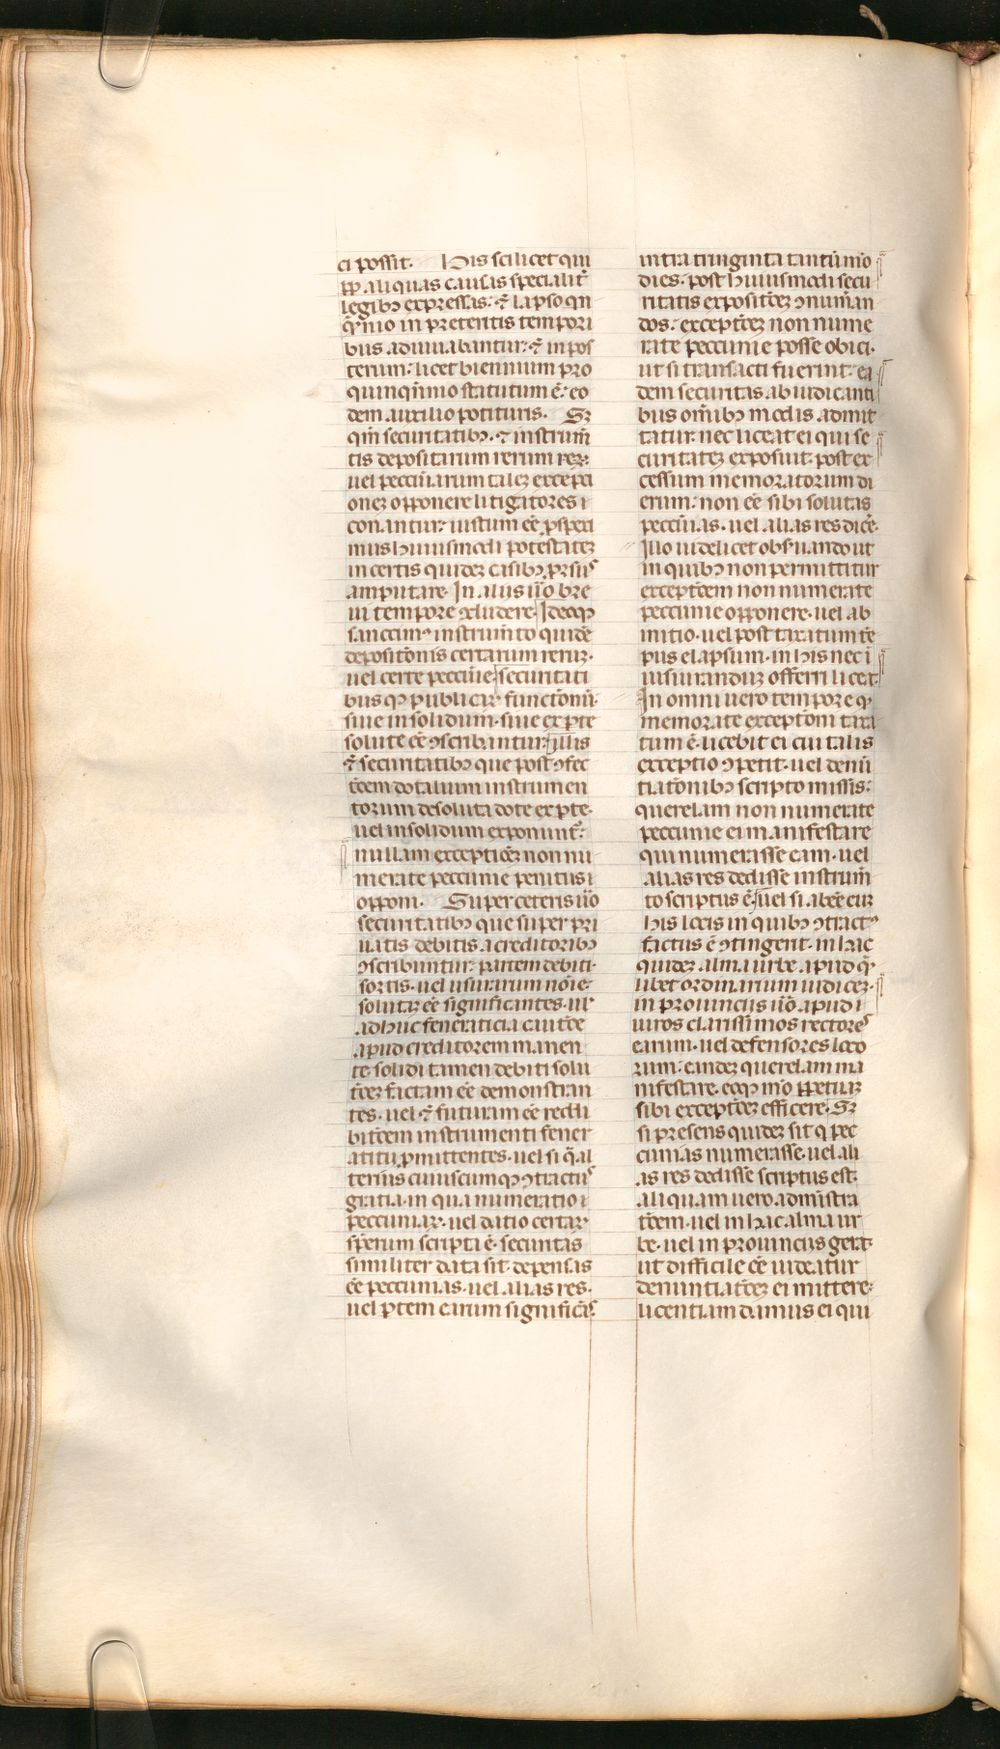 ci possit. His scilicet qui
pp̄. aliquas causas specialit᷑
legibꝫ expressas: ⁊ lapso qn̄
q̄nio in preteritis tempori
bus adiuuabantur: ⁊ in pos
terum: licet biennium pro
quinqn̄nio statutum ē: eo
dem auxilio potituris. Sꝫ
qm̄ securitatibꝫ. ⁊ instrum̄
tis depositarum rerum
uel peccuniarum taleꝫ excepci
oneꝫ opponere litigatores
conantur: iustum eē ꝑspexi
mus huiusmodi potestateꝫ
in certis quideꝫ casibꝫ ꝓrsus
amputare. In aliis u̅o bre
ui tempore ꝯcludere. Ideoqꝫ
sanccimꝰ instrum̄to quidē
depositōnis certarum rerum.
uel certe peccunie securitati
busqꝫ publicarꝝ functōnū.
siue in solidum. siue ex ꝑte
solute eē ꝯscribantur. illis
⁊ securitatibꝫ que post ꝯfec
tōem dotalium instrumen
torum de soluta dote ex ꝑte.
uel in solidum exponunt᷑:
nullam exceptiōeꝫ non nu
merate peccunie penitus
opponi. Super ceteris u̅o
securitatibꝫ que super pri
uatis debitis a creditoribꝫ
ꝯscribuntur: partem debiti.
sortis. uel usurarum noīe.
solutaꝫ eē significantes. uł
adhuc feneraticia cautōe
apud creditorem manen
te solidi tamen debiti solu
tōeꝫ factam eē demonstran
tes. uel ⁊ futuram eē reddi
bitōem instrumenti fener
atitii ꝓmittentes. uel si q̄ al
terius cuiuscumqꝫ ꝯtractus
gratia. in qua numeratio
peccuniarꝝ. uel datio certarꝝ
sꝑerum scripta ē. securitas
similiter data sit. depensas
eē peccunias. uel alias res.
uel ꝑtem earum significās
intra tringinta tantūm̊o
dies. post huiusmodi secu
ritatis expositōeꝫ ꝯnumeran
dos: exceptōeꝫ non nume
rate peccunie posse obici.
ut si transacti fuerint: ea
dem securitas ab iudicanti
bus om̄ibꝫ modis admit
tatur. nec liceat ei qui se
curitateꝫ exposuit. post ex
cessum memoratorum di
erum: non eē sibi solutas
peccunias. uel alias res dicē.
Illo uidelicet obs̄uando ut
in quibꝫ non permittitur
exceptōem non numerate
peccunie opponere. uel ab
initio. uel post taxatum tē
pus elapsum. in his nec ī
iusiuranduꝫ offerri liceat.
In omni uero tempore qꝫ
memorate exceptōni taxa
tum ē. licebit ei cui talis
exceptio ꝯpetit. uel denū
tiatōnibꝫ scripto missis:
querelam non numerate
peccunie ei manifestare
qui numerasse eam. uel
alias res dedisse instrum̄
to scriptus ē. uel si abeē eū
his locis in quibꝫ ꝯtractꝰ
factus ē ꝯtingerit. in hac
quideꝫ alma urbe apud q̄
libet ordinarium iudiceꝫ.
in prouinciis u̅o. apud
uiros clarissimos rectores
earum. uel defensores loco
rum: eandeꝫ querelam ma
nifestare. eoqꝫ m̊o ꝑpetuaꝫ
sibi exceptōeꝫ efficere. Sꝫ
si presens quideꝫ sit q̇ pec
cunias numerasse. uel ali
as res dedisse scriptus est.
aliquam uero administra
tōem. uel in hac alma ur
be. uel in prouinciis gerat.
ut difficile eē uideatur
denuntiatōeꝫ ei mittere.
licentiam damus ei qui